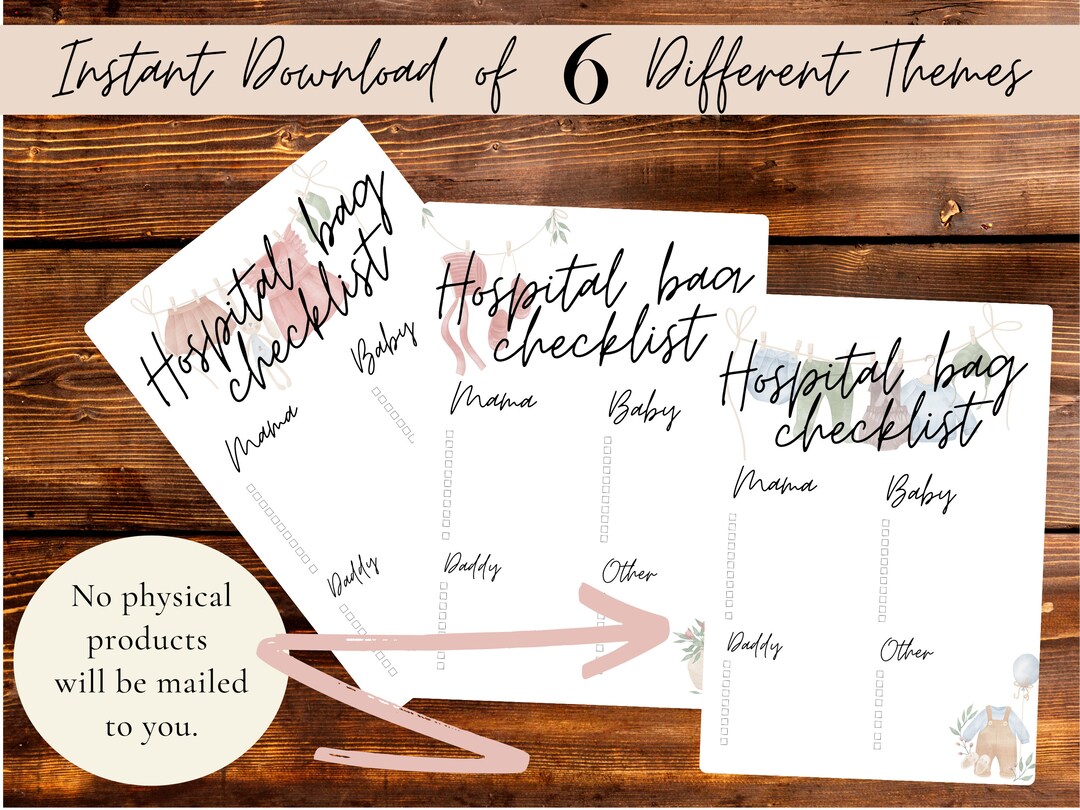 Instant Download of 6 Different Themes
Hospital bag
checklist
Mama
Baby
Daddy
Hospital bag
checklist
Mama
Baby
Daddy
Other
Hospital bag
checklist
Mama
Baby
Daddy
Other
No physical
products
will be mailed
to you.